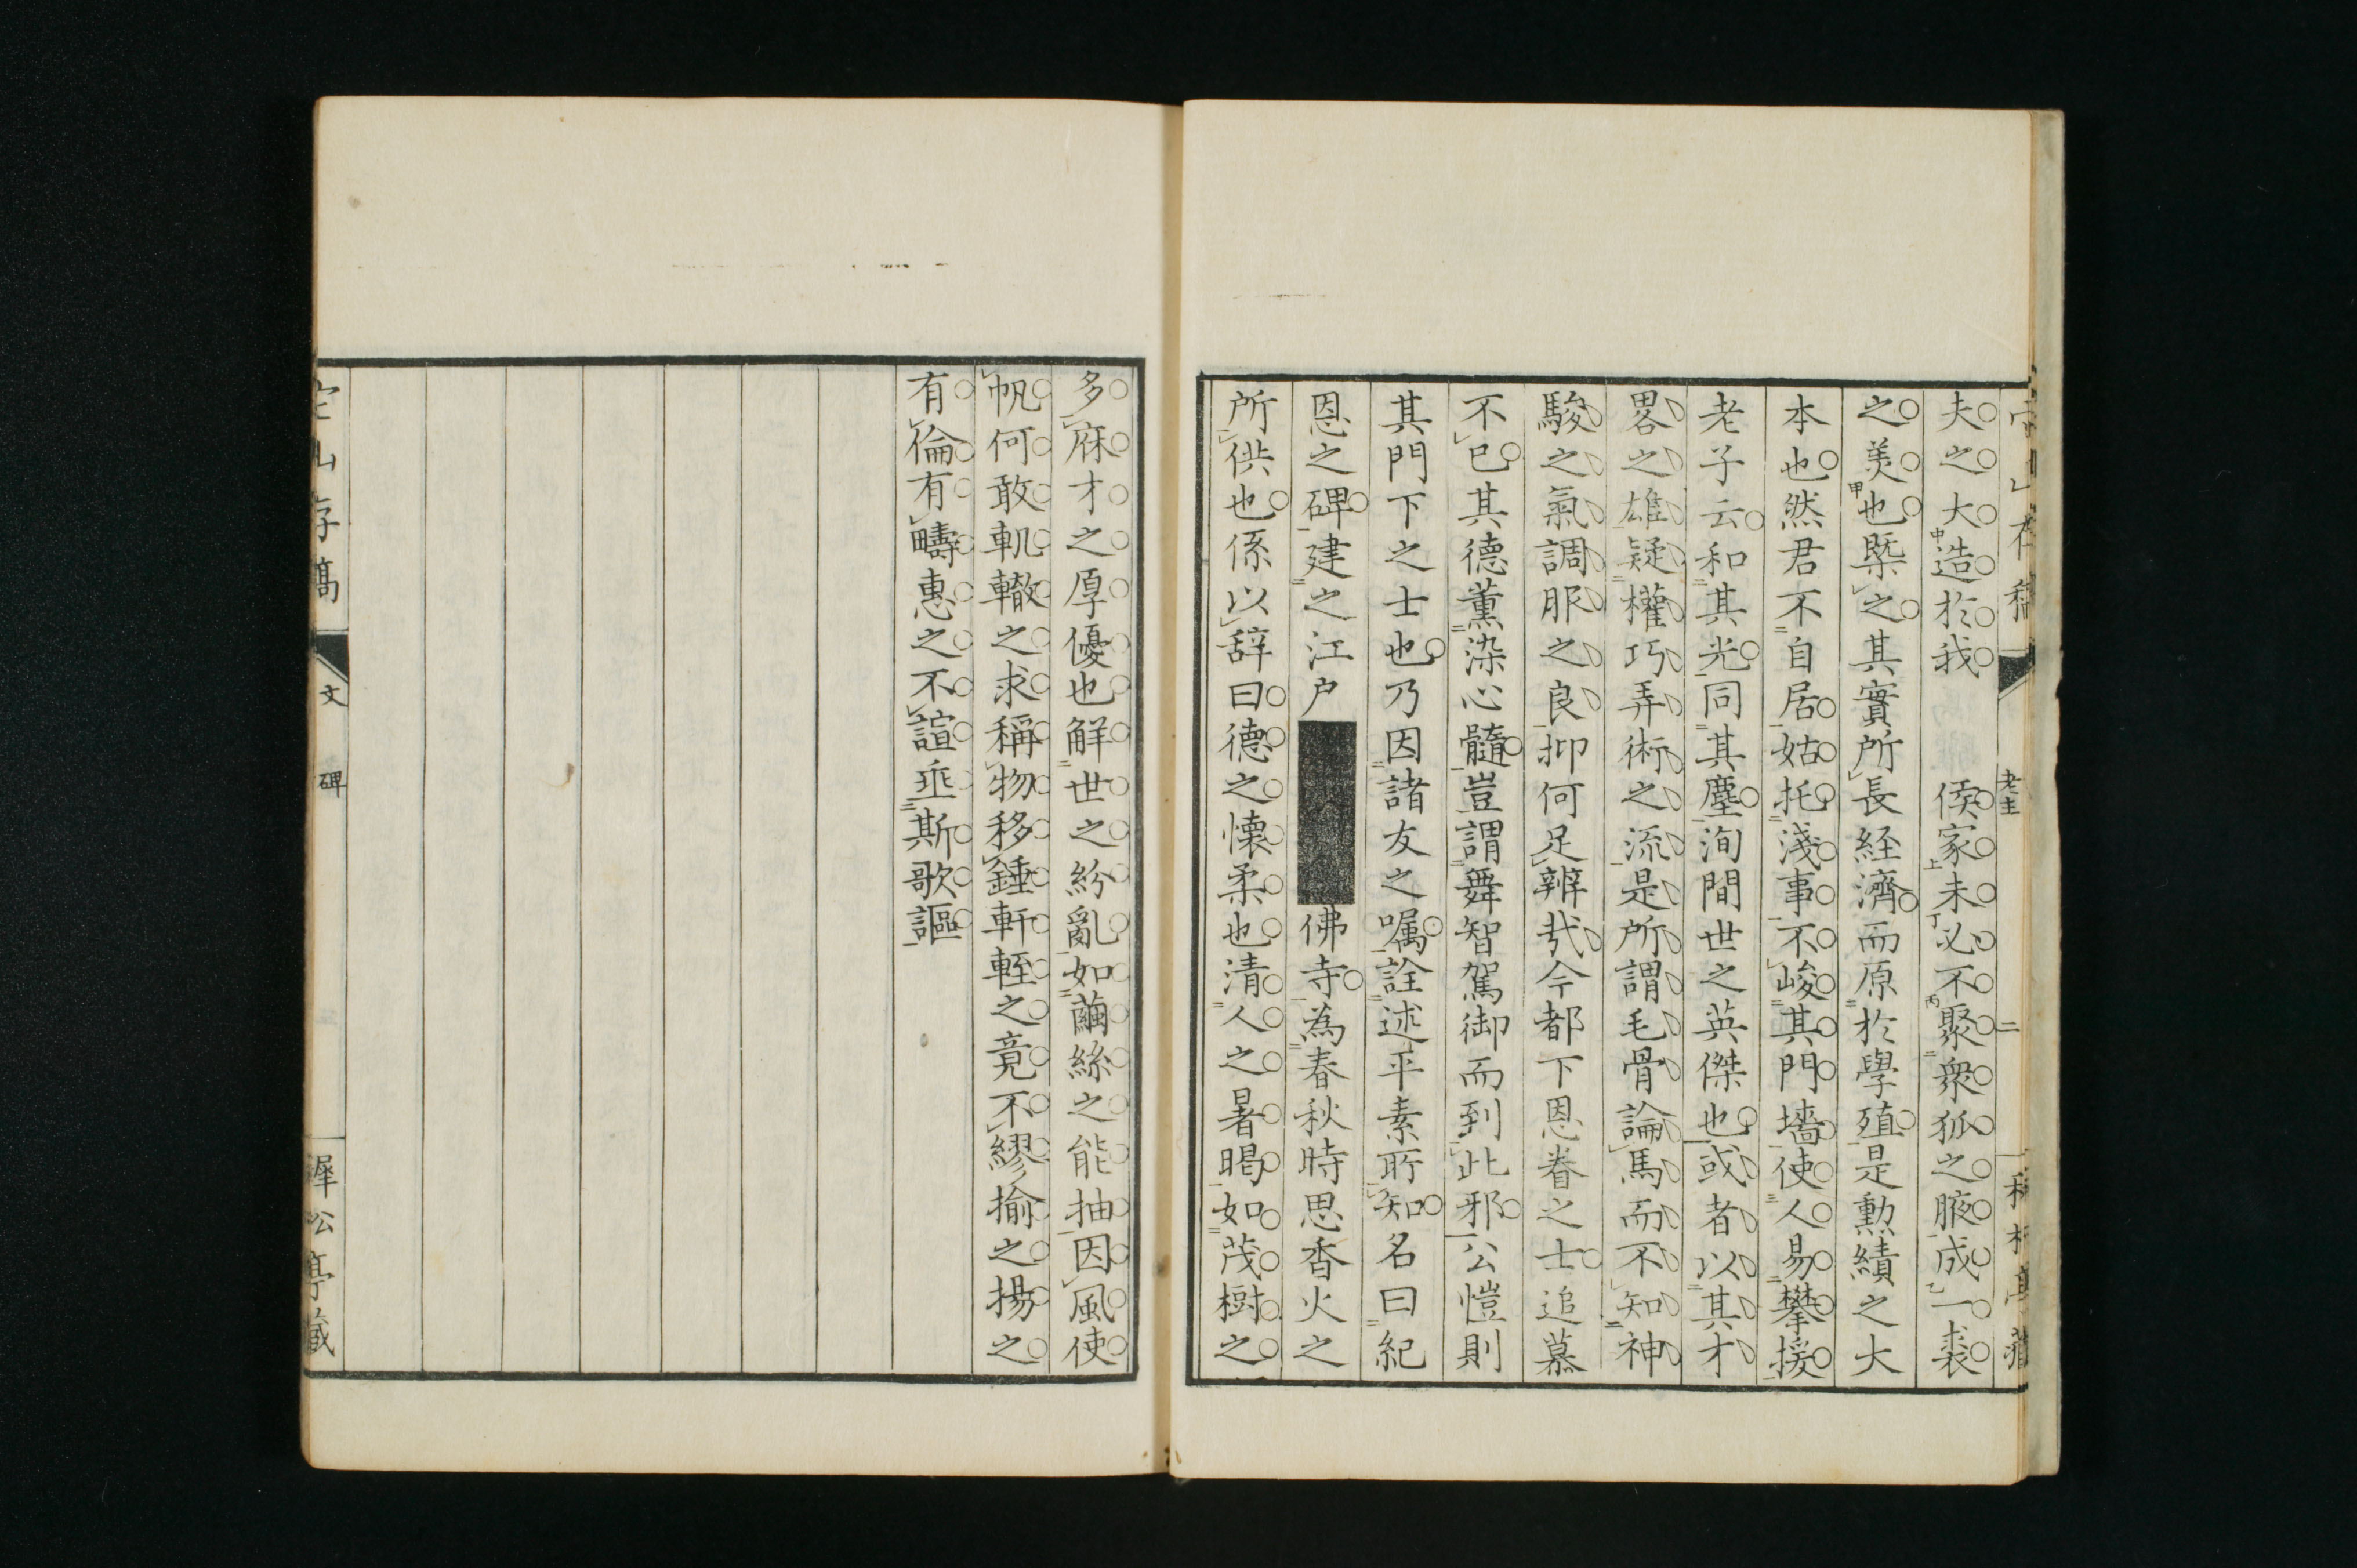 夫之大造於我 侯家未必不聚衆狐之腋成一裘
之羙也槩之其實所長経濟而原於學殖是勲績之大
本也然君不自居姑托淺事不峻其門墻使人易攀援
老子云和其光同其塵洵間世之英傑也或者以其才
畧之雄疑權巧弄術之流是所謂毛骨論馬而不知神
駿之氣調服之良抑何足辨㢤今都下恩眷之士追慕
不已其德薫染心髓豈謂舞智駕御而到此邪公愷則
其門下之士也乃因諸友之嘱詮述平素所知名曰紀
恩之碑建之江户佛寺為春秋時思香火之
所供也係以辞曰德之懐柔也清人之暑暍如茂樹之
多庥才之厚優也解世之紛亂如繭絲之能抽因風使
帆何敢軌轍之求稱物移錘軒輊之竟不繆揄之揚之
有倫有疇惠之不諠垂斯歌謳
文 碑
二